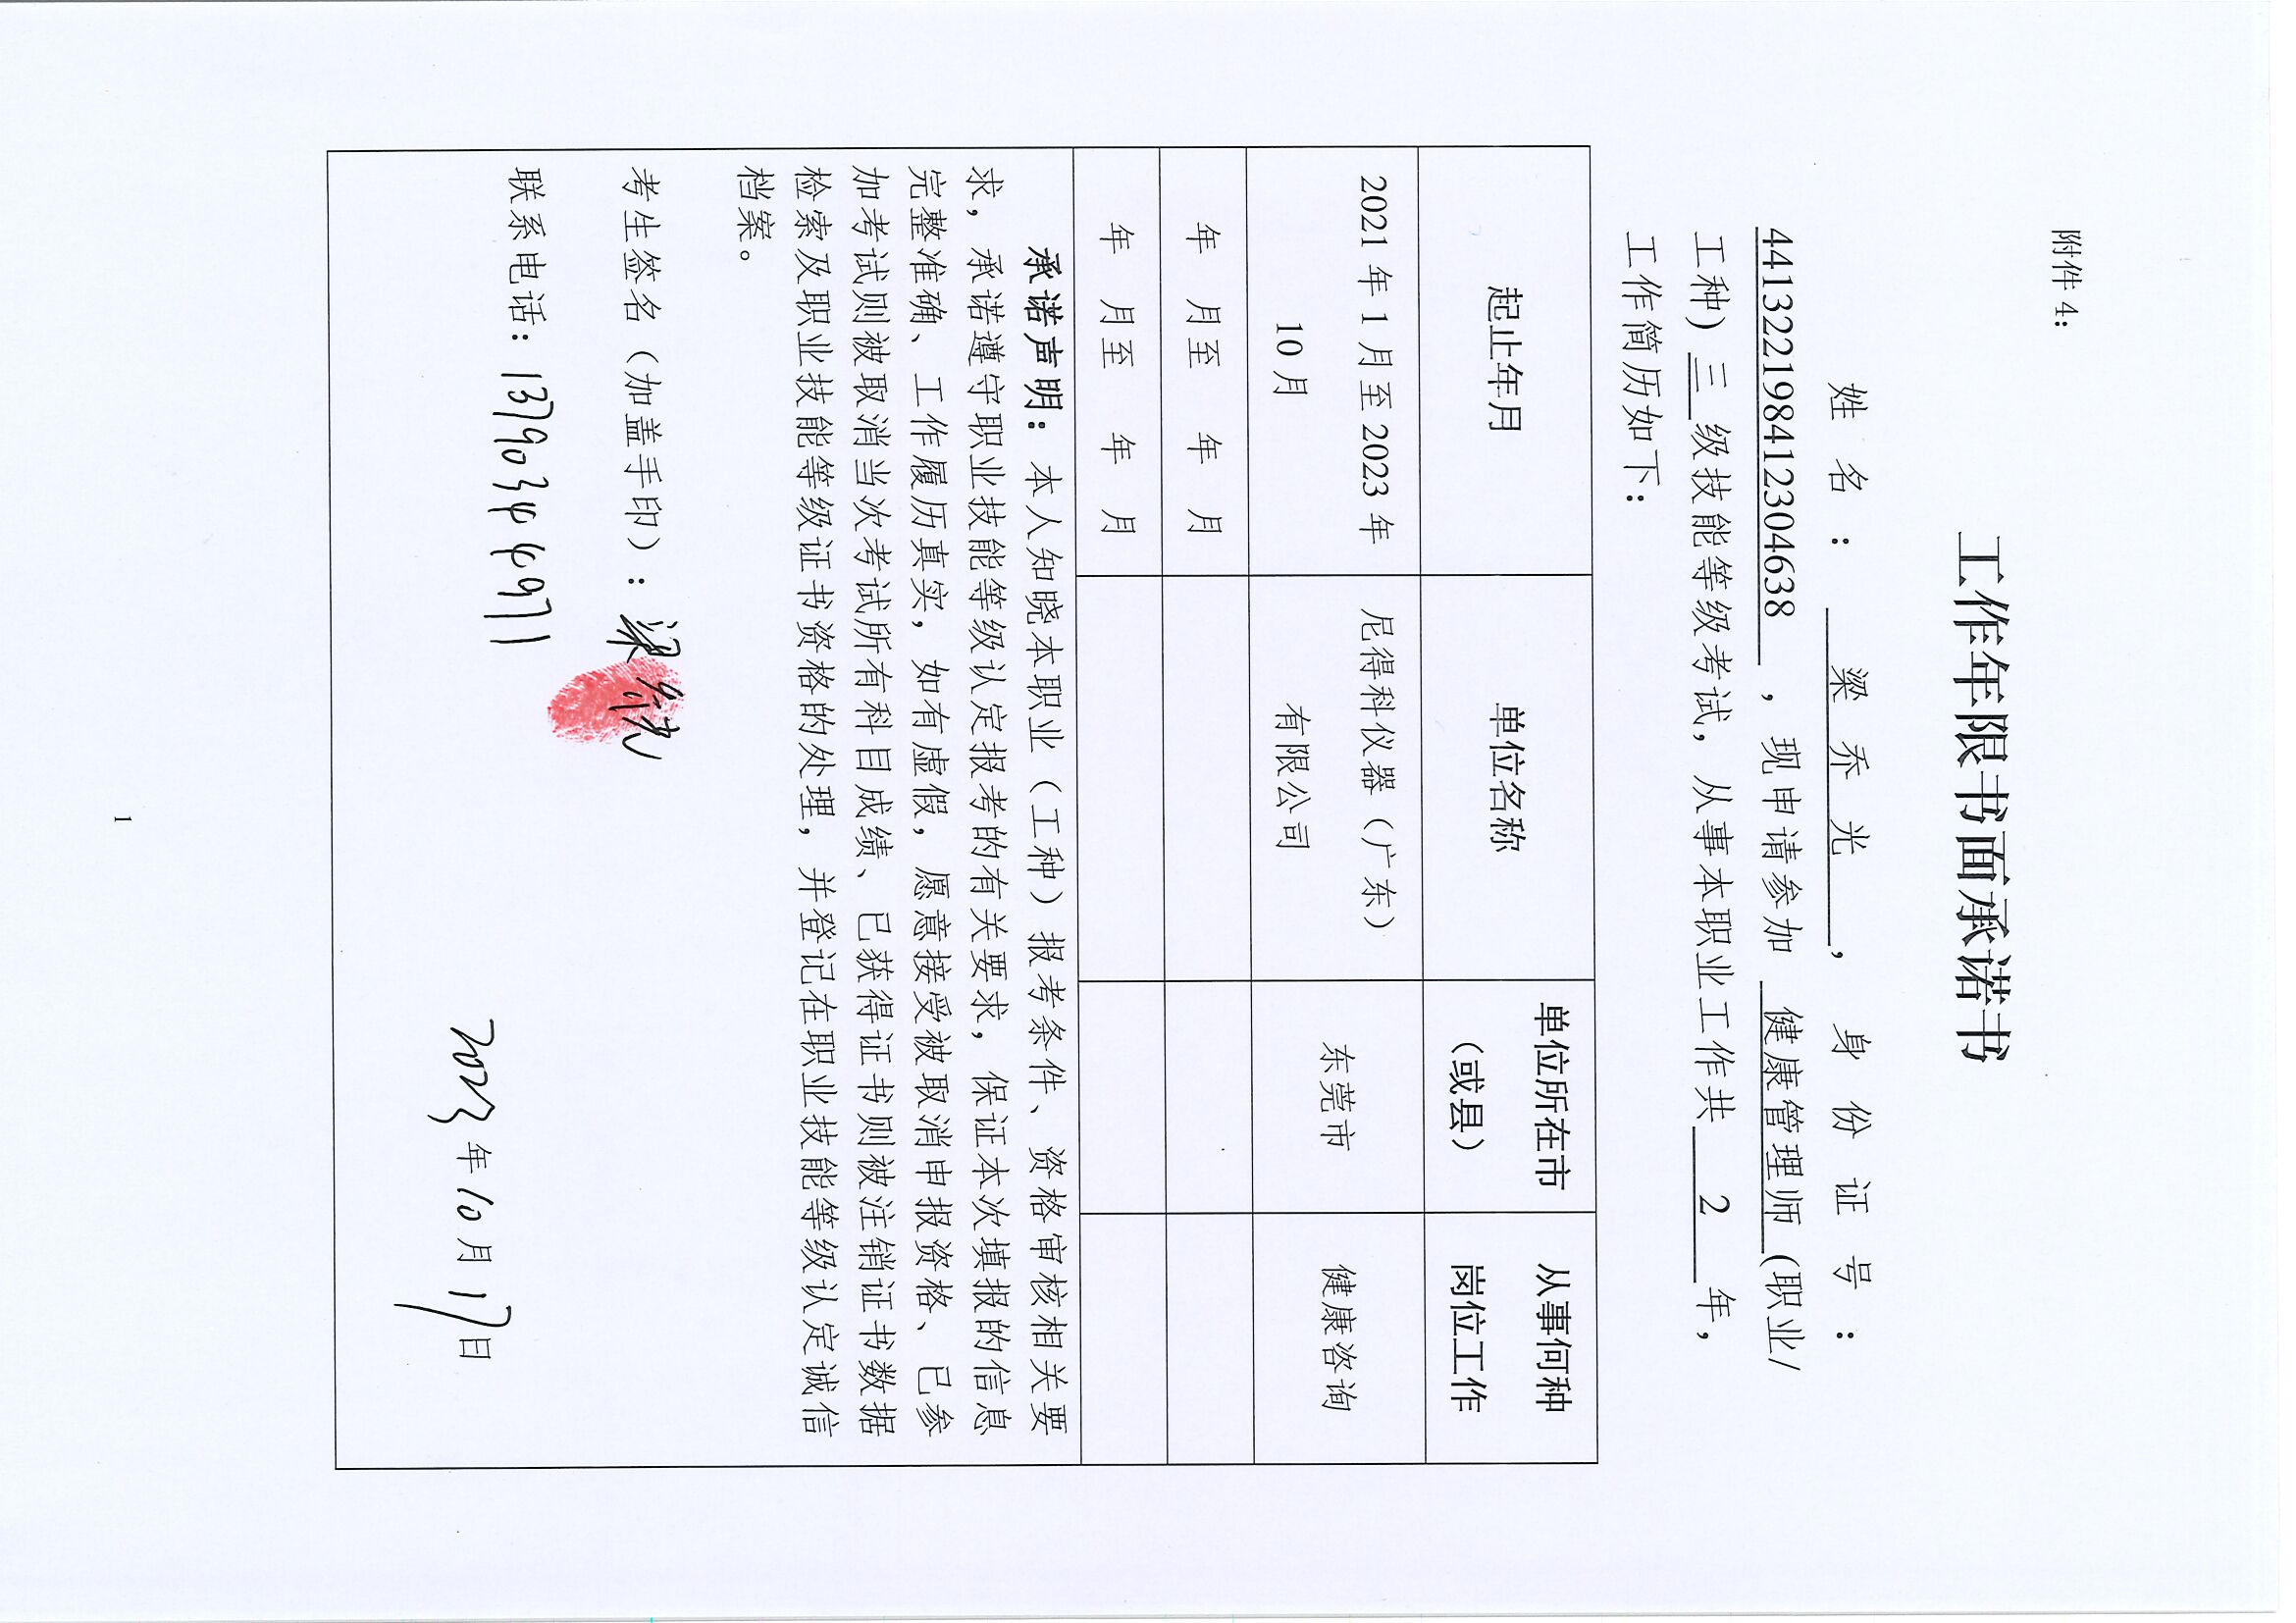 附件 4：
工作年限书面承诺书
姓名：梁乔光，身份证号：
441322198412304638，现申请参加 健康管理师 (职业/
工种) 三 级技能等级考试，从事本职业工作共 2 年，
工作简历如下：
起止年月 单位名称 单位所在市（或县） 从事何种岗位工作
2021 年 1 月至 2023 年 10 月 尼得科仪器（广东）有限公司 东莞市 健康咨询
年 月至 年 月
年 月至 年 月
承诺声明：本人知晓本职业（工种）报考条件、资格审核相关要
求，承诺遵守职业技能等级认定报考的有关要求，保证本次填报的信息
完整准确、工作履历真实，如有虚假，愿意接受被取消申报资格、已参
加考试则被取消当次考试所有科目成绩、已获得证书则被注销证书数据
检索及职业技能等级证书资格的处理，并登记在职业技能等级认定诚信
档案。
考生签名（加盖手印）：梁乔光
联系电话：13790344971
2023年10月17日
1